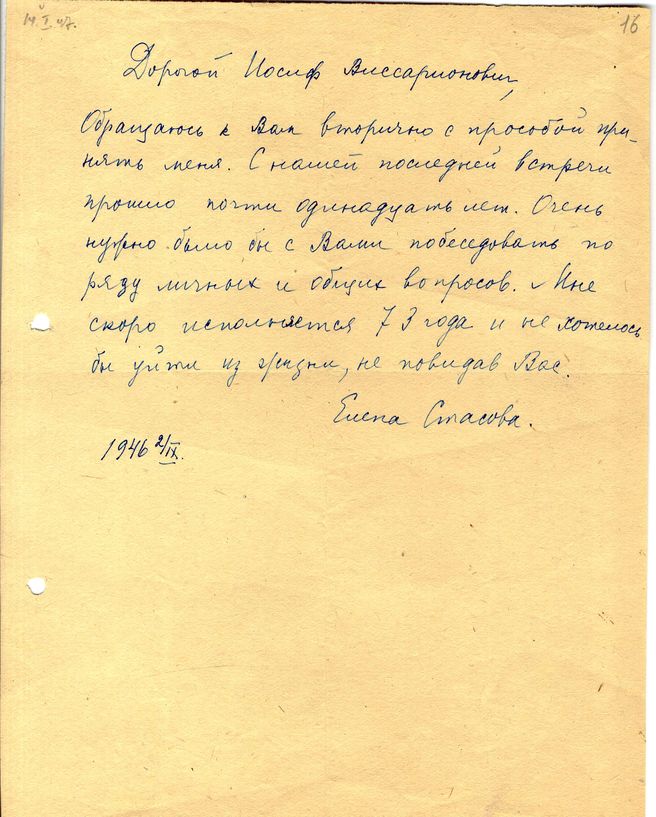 14 I 47.
16
Дорогой Иосиф Виссарионович,
Обращаюсь к Вам вторично с прособой при-
нять меня. С нашей последней встречи
прошло почти одинадцать лет. Очень
нужно было бы с Вами побеседовать по
ряду личных и общих вопросов. Мне
скоро исполняется 73 года и не хотелось
бы уйти из жизни, не повидав Вас.
Елена Стасова.
1946 2/IX.